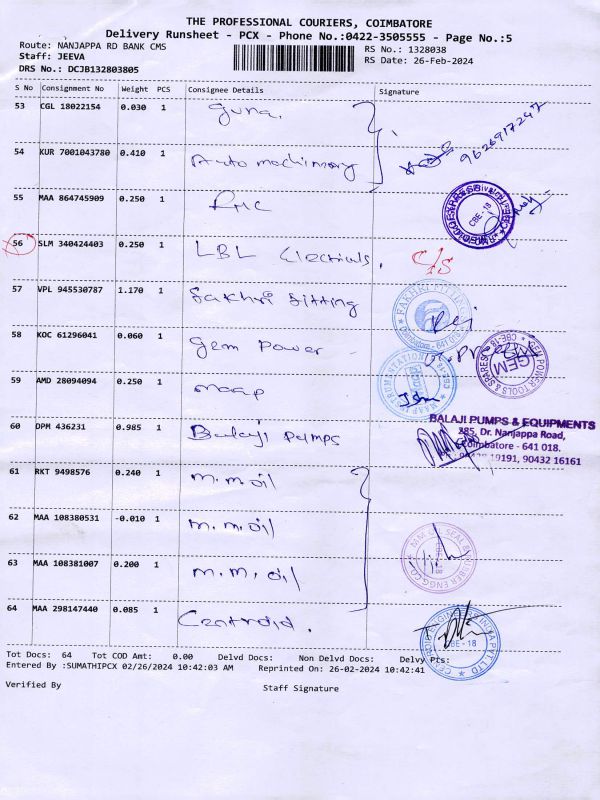 THE PROFESSIONAL COURIERS, COIMBATORE
Delivery Runsheet - PCX - Phone No.:0422-3505555 - Page No.:5
Route: NANJAPPA RD BANK CMS
RS No.: 1328038
Staff: JEEVA
RS Date: 26-Feb-2024
DRS No.: DCJB132803805
S No Consignment No Weight PCS Consignee Details Signature
53 CGL 18022154 0.030 1 Guna.
9626917247
54 KUR 7001043780 0.410 1 Auto machinery
55 MAA 864745909 0.250 1
CBE-18
56 SLM 340424403 0.250 1 LBL Electricals. C/S
57 VPL 945530787 1.170 1 Fakhri fitting
58 KOC 61296041 0.060 1 Gem Power
GEM POWER TOOLS & SPARES
GEM
CBE-18
59 AMD 28094094 0.250 1 maap
60 DPM 436231 0.985 1 Balaji Pumps
BALAJI PUMPS & EQUIPMENTS
385, Dr. Nanjappa Road,
Coimbatore - 641 018.
19191, 90432 16161
61 RKT 9498576 0.240 1 m.m oil
62 MAA 108380531 -0.010 1 m.m.oil
63 MAA 108381007 0.200 1 m.m.oil
64 MAA 298147440 0.085 1 Centroid.
CBE-18
Tot Docs: 64 Tot COD Amt: 0.00 Delvd Docs: Non Delvd Docs: Delvy Pts:
Entered By :SUMATHIPCX 02/26/2024 10:42:03 AM Reprinted On: 26-02-2024 10:42:41
Verified By Staff Signature